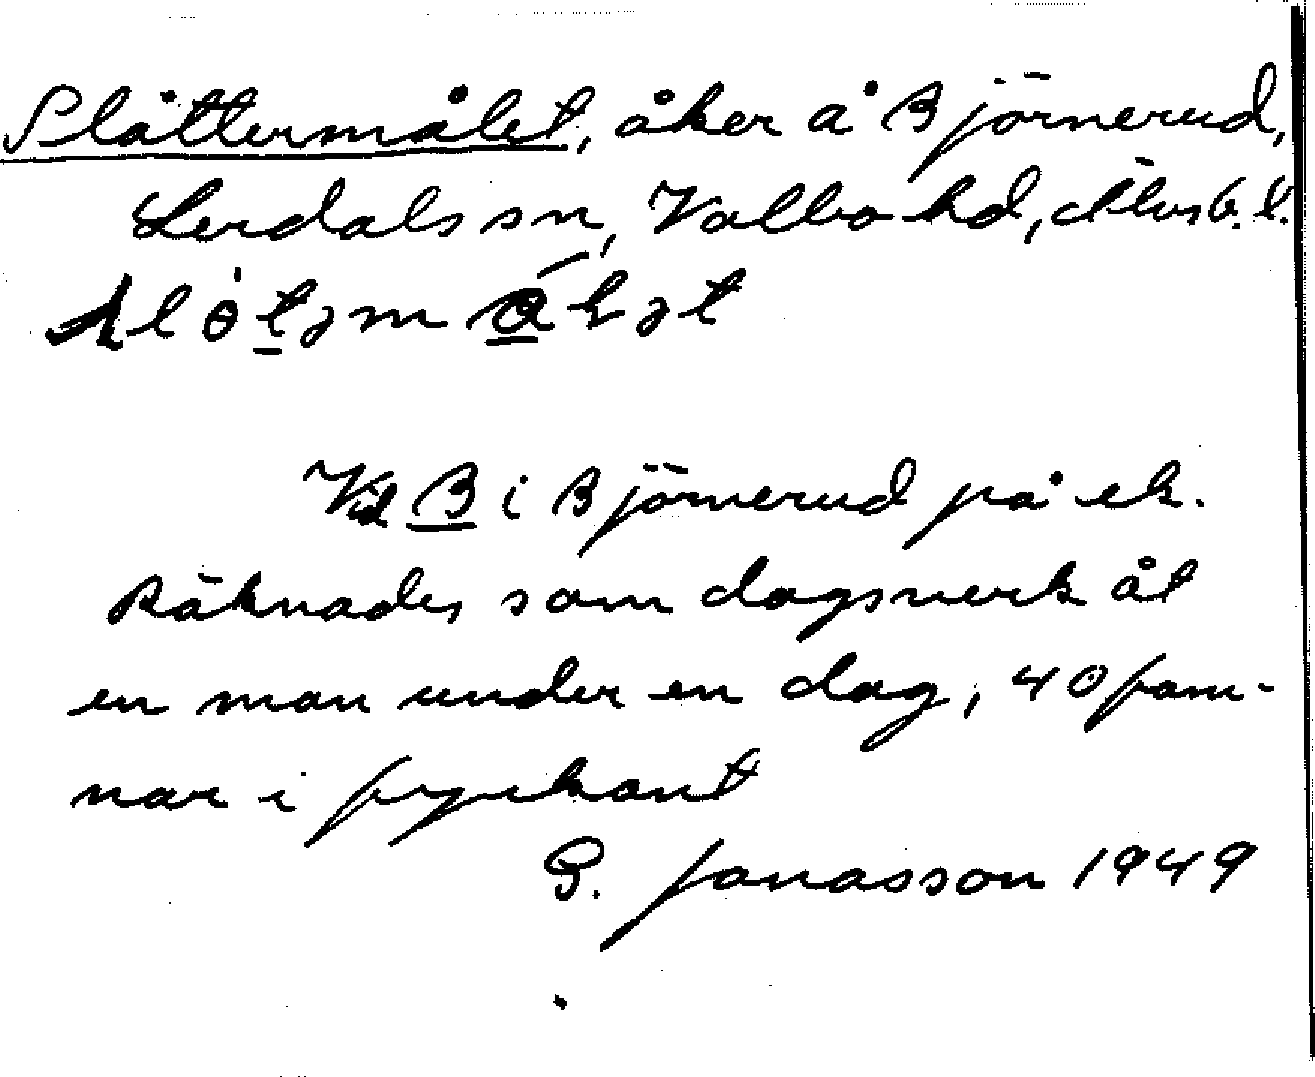 Slåttermålet, åker å Björnerud,
Lerdals sn, Valbo hd, Älvsb. l.
Vid B i Björnerud på ek.
Räknades som dagsverk åt
en man under en dag, 40 fam-
nar i fyrkant
G. Jonasson 1949